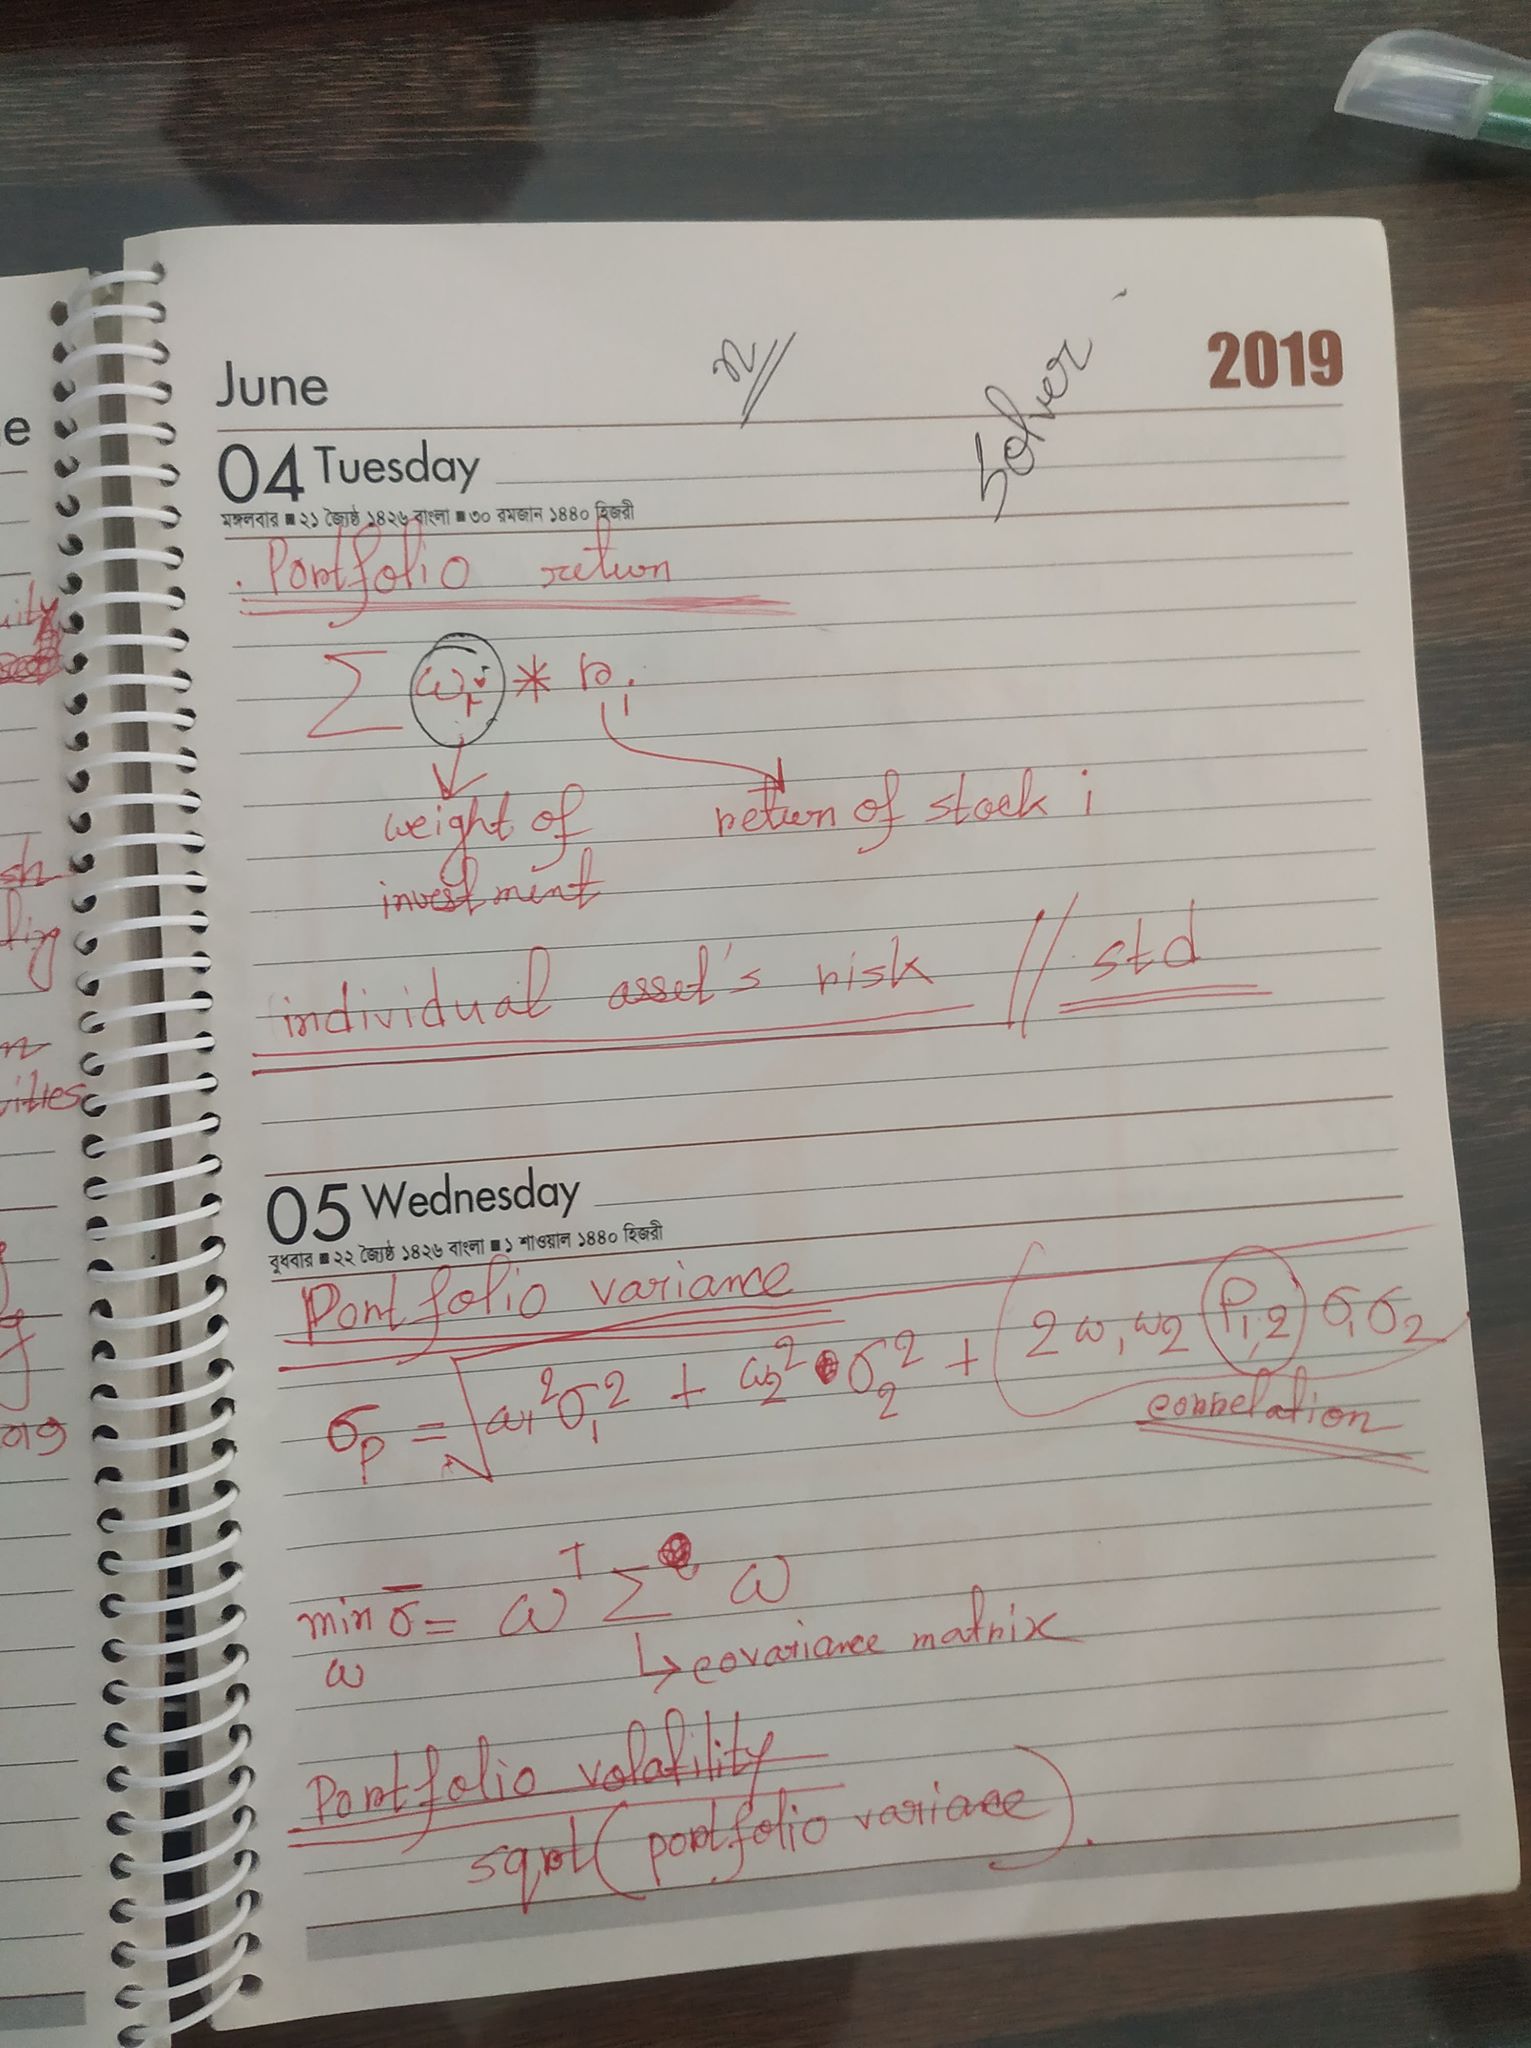 June
2019
n
Solver
04 Tuesday
মঙ্গলবার ■ ২১ জ্যৈষ্ঠ ১৪২৬ বাংলা ■ ৩০ রমজান ১৪৪০ হিজরী
Portfolio return
∑ ωi * ri
weight of return of stock i
investment
individual asset's risk // std
05 Wednesday
বুধবার ■ ২২ জ্যৈষ্ঠ ১৪২৬ বাংলা ■ ১ শাওয়াল ১৪৪০ হিজরী
Portfolio variance
σp = √ω₁²σ₁² + ω₂²σ₂² + (2ω₁ω₂ ρ₁,₂ σ₁σ₂
correlation
min σ̄ = ωᵀ ∑ ω
ω ↳ covariance matrix
Portfolio volatility
sqrt (portfolio variance).